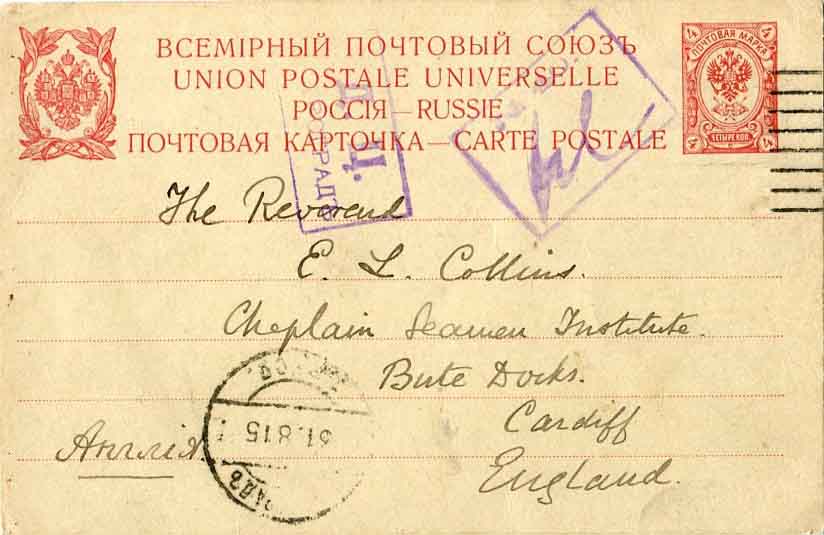 ВСЕМІРНЫЙ ПОЧТОВЫЙ СОЮЗЪ
UNION POSTALE UNIVERSELLE
РОССІЯ — RUSSIE
ПОЧТОВАЯ КАРТОЧКА — CARTE POSTALE
4 4
ПОЧТОВАЯ МАРКА
ЧЕТЫРЕ КОП.
4 4
Д.Ц.
The Reverend
E. L. Collins.
Cheplain Seamen Institute.
Bute Docks.
Cardiff
Англія
England.
31.8.15